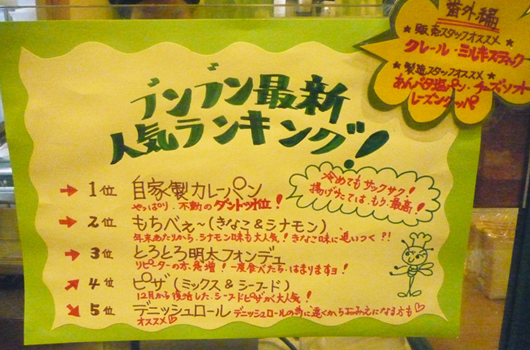 番外編
★ 販売スタッフオススメ ★
クレール・ミルキスティック
★ 製造スタッフオススメ ★
あんバタ塩パン・チーズソフト
レーズンクッパ
ブンブン最新
人気ランキング!
冷めてもサックサク!
揚げたては、もり、最高!
→ 1位 自家製カレーパン
やっぱり、不動のダントツ1位!
→ 2位 もちべぇ〜(きなこ&シナモン)
年末あたりから、シナモン味も大人気!きなこ味に追いつく?!
→ 3位 とろとろ明太フォンデュ
リピーターの方、急増!一度食べたら、はまりますヨ!
↗ 4位 ピザ(ミックス&シーフード)
12月から復活した、シーフードピザが大人気!
↘ 5位 デニッシュロール デニッシュロールの為に遠くからおみえになる方も♡
オススメ♡